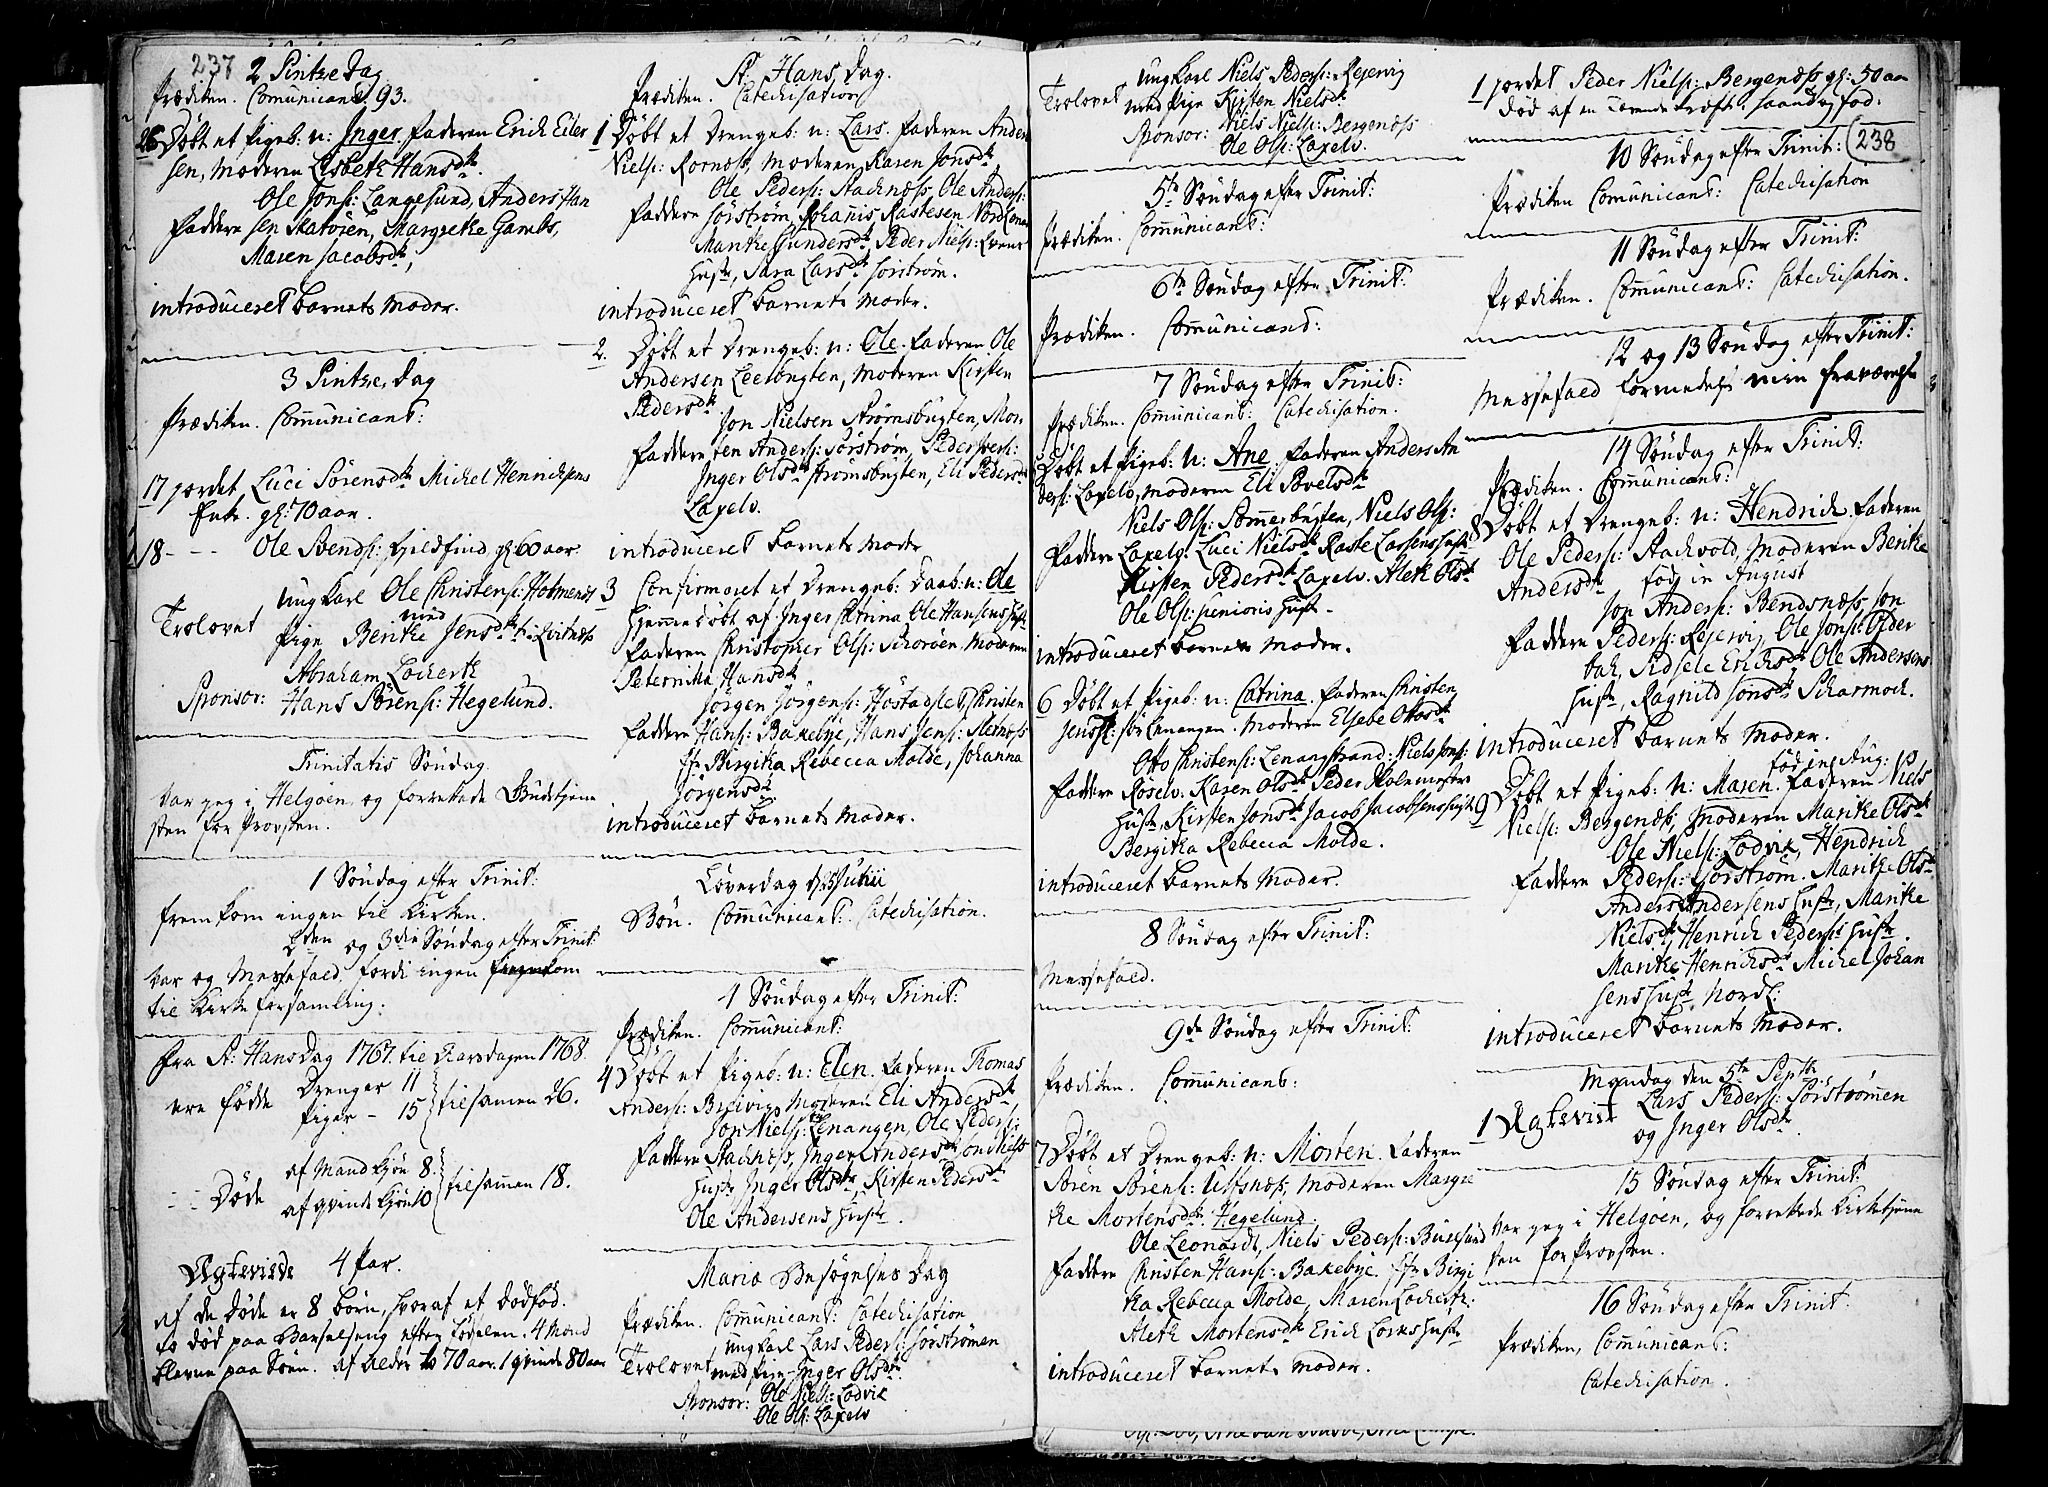 237 2 Pintze Dag
Prædiken. Comunicant. 93.
26 Døbt et Pigeb: n: Inger. faderen Erich Eiler
sen, Moderen Lisbeth Hansdtr.
Ole Jons: Langesund, Anders Han
faddere sen Skatören, Margrethe Gambs,
Maren Jacobsdtr,
introduceret barnets moder.
3 Pintze Dag
Prædiken. Comunicant:
17 jordet Luci Sörensdtr Michel Henrichsens
Enke. gl: 70 aar.
18 - - - Ole Svends: gl: 60 aar.
Ungkarl Ole Christens: Holmenes
Trolovet med
Pige Berithe Jensdtr i Qvitnes
Abraham Lockerth
Sponsor: Hans Sörens: Hegelund.
Trinitatis Söndag
var jeg i Helgöen, og forrettede Gudstjene
sten for Provsten.
1 Söndag efter Trinit:
fremkom ingen til Kirken.
2den og 3die Söndag efter Trinit:
var og Messefald, fordi ingen fremkom
til Kirkeforsamling.
Fra St: Hans Dag 1767. til Aarsdagen 1768.
ere födde Drenger 11
Piger - 15 tilsamen 26.
Döde af Mandkjön 8.
af qvindekjön 10 tilsamen 18.
Ægteviede 4 Par.
af de Döde er 8 börn, hvoraf et dödfød.
to död paa Barselseng efter födselen. 4 Mænd
blevne paa Söen. af alder to 70 aar. 1 qvinde 80 aar
St: Hans Dag.
Prædiken. Catechisation
1 Döbt et Drengeb: n: Lars. faderen Anders
Niels: Kornæs, Moderen Karen Jonsdtr.
Ole Peders: Stachnæs, Ole Anders:
faddere Sörström, Johanis Rastesen Nordlenan
Marithe Gundersdtr, Peder Niels:
hustr, Sara Larsdtr Sörström.
introduceret barnets moder.
2. Döbt et Drengeb: n: Ole. faderen Ole
Andersen Leelbugten, Moderen Kirsten
Pedersdtr.
Jon Nielsen Strömsbugten, Mor
faddere ten Anders: Sörström, Peder Ivers:
Inger Olsdtr Strömsbugten, Eli Pedersdtr
Laxelv.
introduceret barnets moder
3 Confirmeret et Drengeb: Daab: n: Ole
hjemmedöbt af Inger Catrina Ole Hansens hustr
faderen Christopher Ols: Skoröen, Moderen
Peternilla Hansdtr
Jörgen Jörgens: Hostadslet, Christen
faddere Hans: Bakebye, Hans Jens: Sletnæs
Jfr Birgitha Rebecca Molde, Johanna
Jörgensdtr
introduceret barnets moder.
Löverdag d: 25 Junii
Bön. Comunicant: Catechisation.
4 Söndag efter Trinit:
Prædiken. Comunicant:
4 Döbt et Pigeb: n: Elen. faderen Thomas
Anders: Breivig, Moderen Eli Andersdtr
Jon Niels: Lenangen, Ole Peders:
faddere Stachnæs, Inger Andersdtr Jon Niels
hustr Inger Olsdtr, Kirsten Pedersdtr
Ole Andersens hustr.
Mariæ Besögelses Dag
Prædiken. Comunicant: Catechisation
Ungkarl Lars Peders: Sörströmen
Trolovet med Pige - Inger Olsdtr.
Sponsor: Ole Niels: Lodvik
Ole Ols: Laxelv
Ungkarl Niels Peders: Rejervig
Trolovet med Pige Kirsten Nielsdtr
Sponsor: Niels Niels: Bergenæs
Ole Ols: Laxelv.
5te Söndag efter Trinit:
Prædiken. Comunicant:
6te Söndag efter Trinit:
Prædiken. Comunicant:
7 Söndag efter Trinit:
Prædiken. Comunicant: Catechisation.
5 Döbt et Pigeb: n: Ane. faderen Anders An
ders: Laxelv, moderen Eli Povelsdtr
Niels Ols: Sommerbugten, Niels Ols:
faddere Laxelv. Luci Nielsdtr Raste Larsens hustr
Kirsten Pedersdtr Laxelv. Aleth Olsdtr
Ole Ols: senioris hustr.
introduceret barnets moder.
6 Döbt et Pigeb: n: Catrina. faderen Christen
Jens: Sörlenangen. Moderen Elsebe Ottosdtr
Otto Christens: Lenangstrand: Niels Jons:
faddere Röselv. Karen Olsdtr Peder Holmesters
hustr, Kirsten Jonsdtr Jacob Jacobsens hustr
Bergitha Rebecca Molde.
introduceret barnets moder.
8 Söndag efter Trinit:
Messefald.
9de Söndag efter Trinit:
Prædiken. Comunicant:
7 Döbt et Drengeb: n: Morten. faderen
Sören Sörens: Ulfsnæs, Moderen Margre
the Mortensdtr. Hegelund.
Ole Leonardt, Niels Peders: Burøsund
faddere Christen Hans: Bakebye. Jfr Birgi
tha Rebecca Molde, Maren Lockerth:
Aleth Mortensdtr Erich Lorks hustr
introduceret barnets moder.
1 jordet Peder Niels: Bergenæs gl: 50 aar
död af en
10 Söndag efter Trinit: 238
Prædiken Comunicant: Catechisation
11 Söndag efter Trinit:
Prædiken. Comunicant: Catechisation.
12 og 13 Söndag efter Trinit:
Messefald formedelst min fraværelse
14 Söndag efter Trinit:
Prædiken. Comunicant:
8 Döbt et Drengeb: n: Hendrich. faderen
Ole Peders: Stachvold, Moderen Berithe
Andersdtr född in August
Jon Anders: Bendsnæs, Jon
faddere Peders: Rejervig, Ole Jons: Older
bak, Sidsele Erichsdtr Ole Andersens
hustr, Ragnild Jonsdtr Skarmoch.
introduceret barnets moder.
född in Aug:
9 Döbt et Pigeb: n: Maren. faderen Niels
Niels: Bergenæs, moderen Marithe Olsdtr
Ole Niels: Lodvik, Hendrich
faddere Peders: Sörström. Marithe Olsdtr
Anders Andersens hustr, Marithe
Nielsdtr, Henrich Peders: hustr.
Marithe Henrichsdtr Michel Johan
sens hustr, Nordl:
introduceret barnets moder.
Mandag den 5te Septbr.
1 Ægteviet Lars Peders: Sörströmen
og Inger Olsdtr.
15 Söndag efter Trinit:
var jeg i Helgöen, og forrettede Kirketjene
sten for Provsten.
16 Söndag efter Trinit:
Prædiken, Comunicant:
Catechisation.